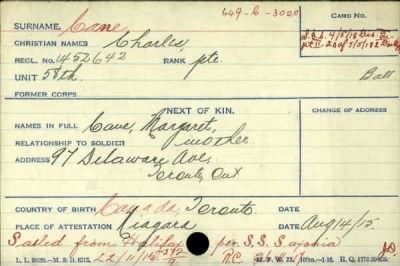 649-C-3020
SURNAME. Cane
CARD No.
CHRISTIAN NAMES Charles
S.O.S. 4/5/18
REGL. No. 452642 RANK pte.
UNIT 58th. Batt
FORMER CORPS
NEXT OF KIN.
CHANGE OF ADDRESS
NAMES IN FULL Cane, Margaret,
RELATIONSHIP TO SOLDIER mother
ADDRESS 97 Delaware Ave.
Toronto, Ont
COUNTRY OF BIRTH Canada, Toronto.
PLACE OF ATTESTATION Niagara DATE Aug 14/15.
Sailed from Halifax per S.S. Saxonia
L. L. M. & D. 22/11/15 R.C. M. F. W. 22.